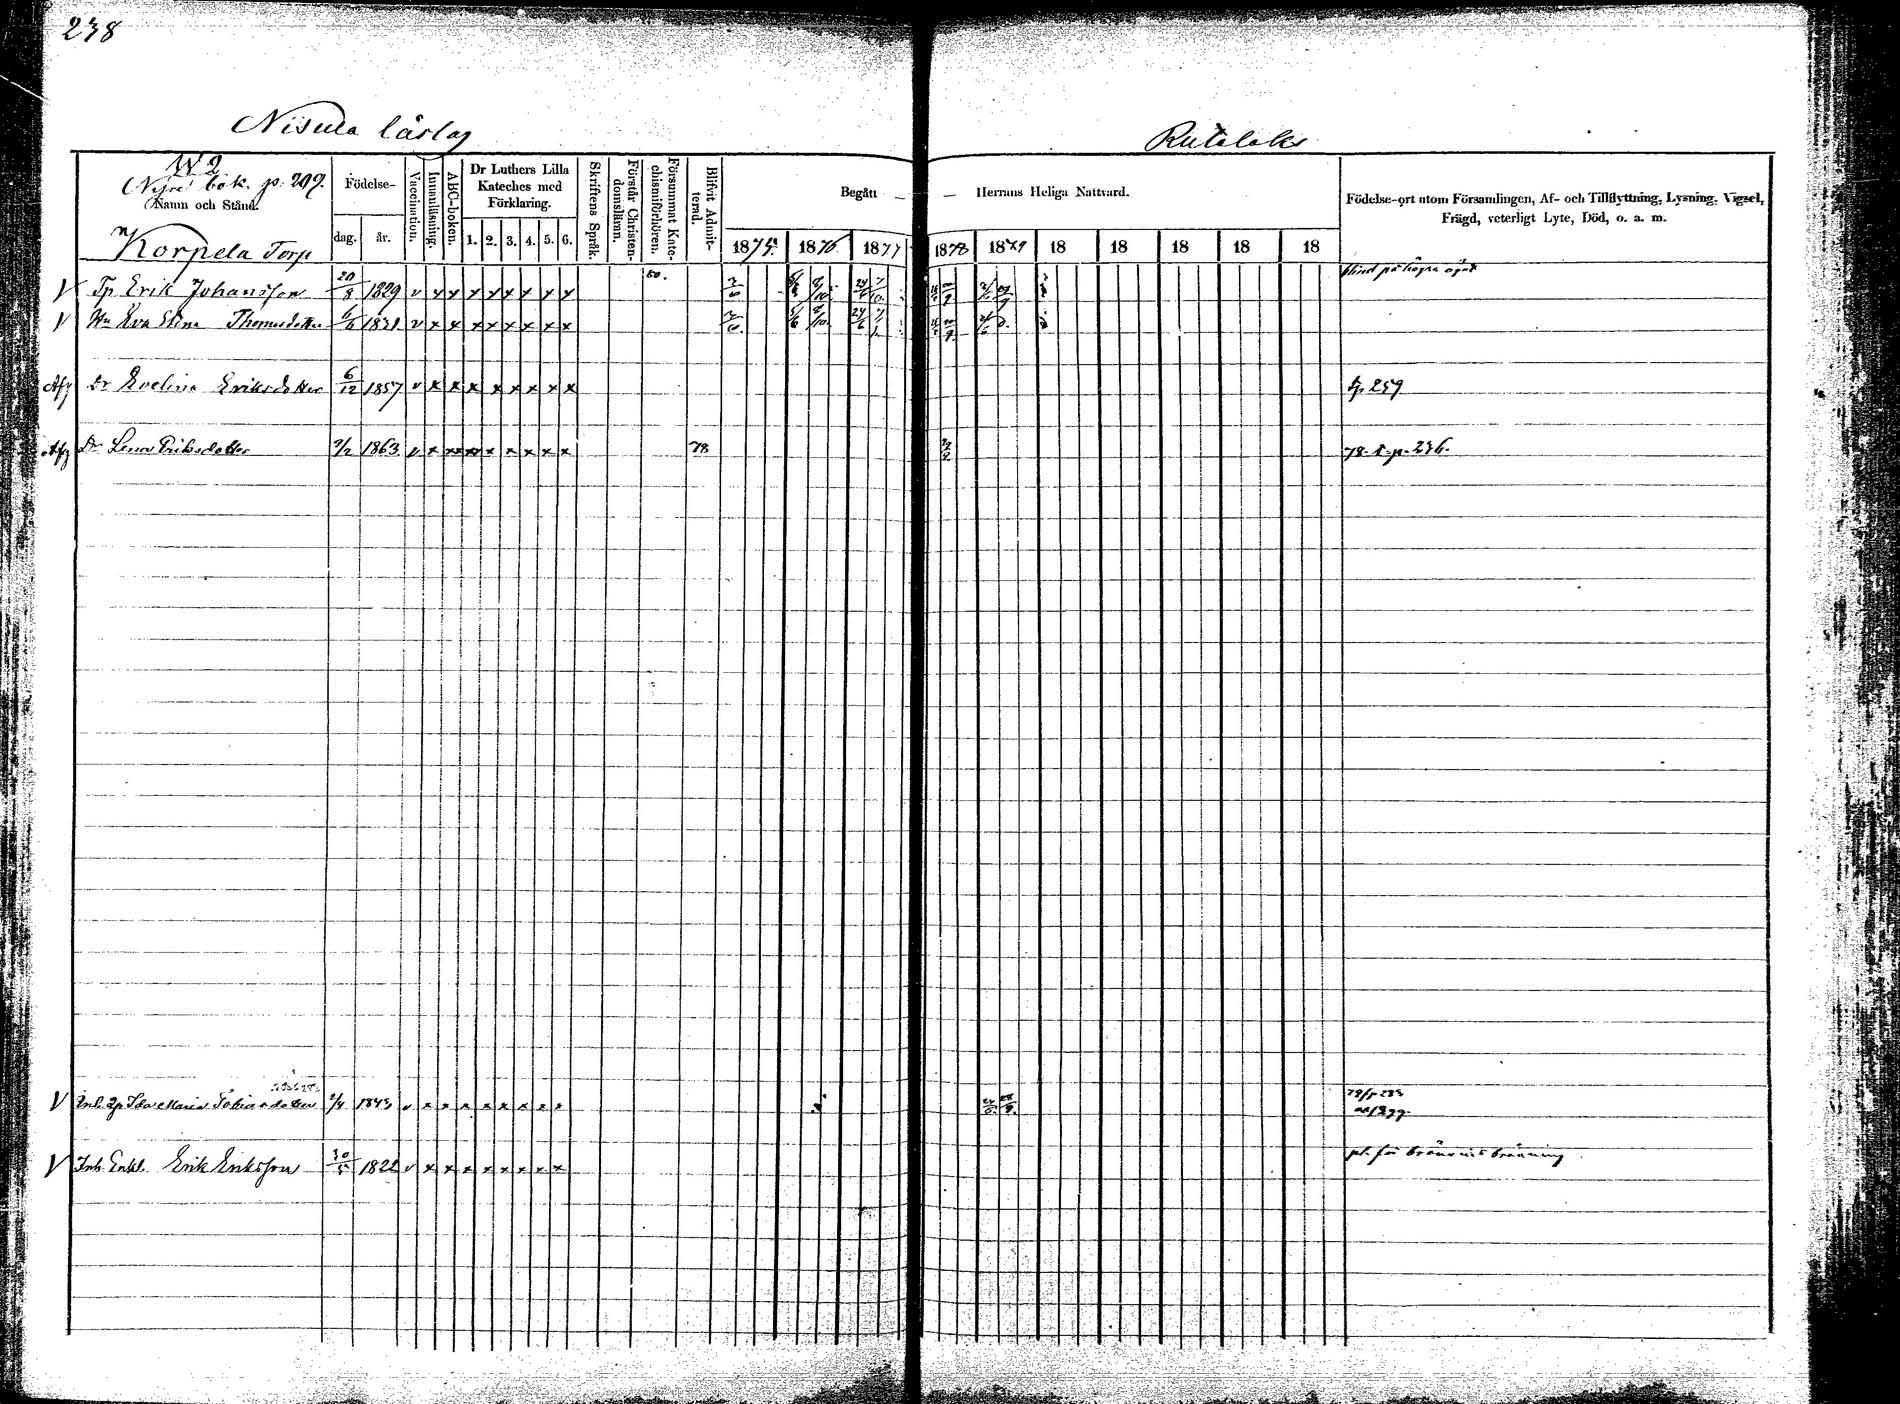 238
Nisula läslag
Rutalaks
N 2
Nyra bok. p. 209.
Namn och Stånd.
Korpela Torp
Födelse-
dag. år.
Vaccination.
Innanläsning.
ABC-boken.
Dr Luthers Lilla
Kateches med
Förklaring.
1. 2. 3. 4. 5. 6.
Skriftens Språk.
Förstår Christen-
domslämn.
Försummat Kate-
chismiförhören.
Blifvit Admit-
terad.
Begått — — Herrans Heliga Nattvard.
1875. 1876 1877 1878 1879 18 18 18 18 18
Födelse-ort utom Församlingen, Af- och Tillflyttning, Lysning, Vigsel,
Frägd, veterligt Lyte, Död, o. a. m.
V Tp Erik Johansson 20/8 1829 v x x x x x x x x 60. blind på högra ögat
V Hu Eva Stina Thomasdotter 6/6 1831 v x x x x x x x x
Afg Dr Evelina Eriksdotter 6/12 1857 v x x x x x x x x fp. 259
Afg Dr Lena Eriksdotter 7/2 1863 v x x x x x x x x 78 78. t. p. 236.
V Inh. Ida Maria Tobiasdotter 1843 v x x x x x x x x 24/6 28/9 79/p 283
V Inh. Enkl. Erik Eriksson 30/5 1822 v x x x x x x x x pl. för brännvins bränning